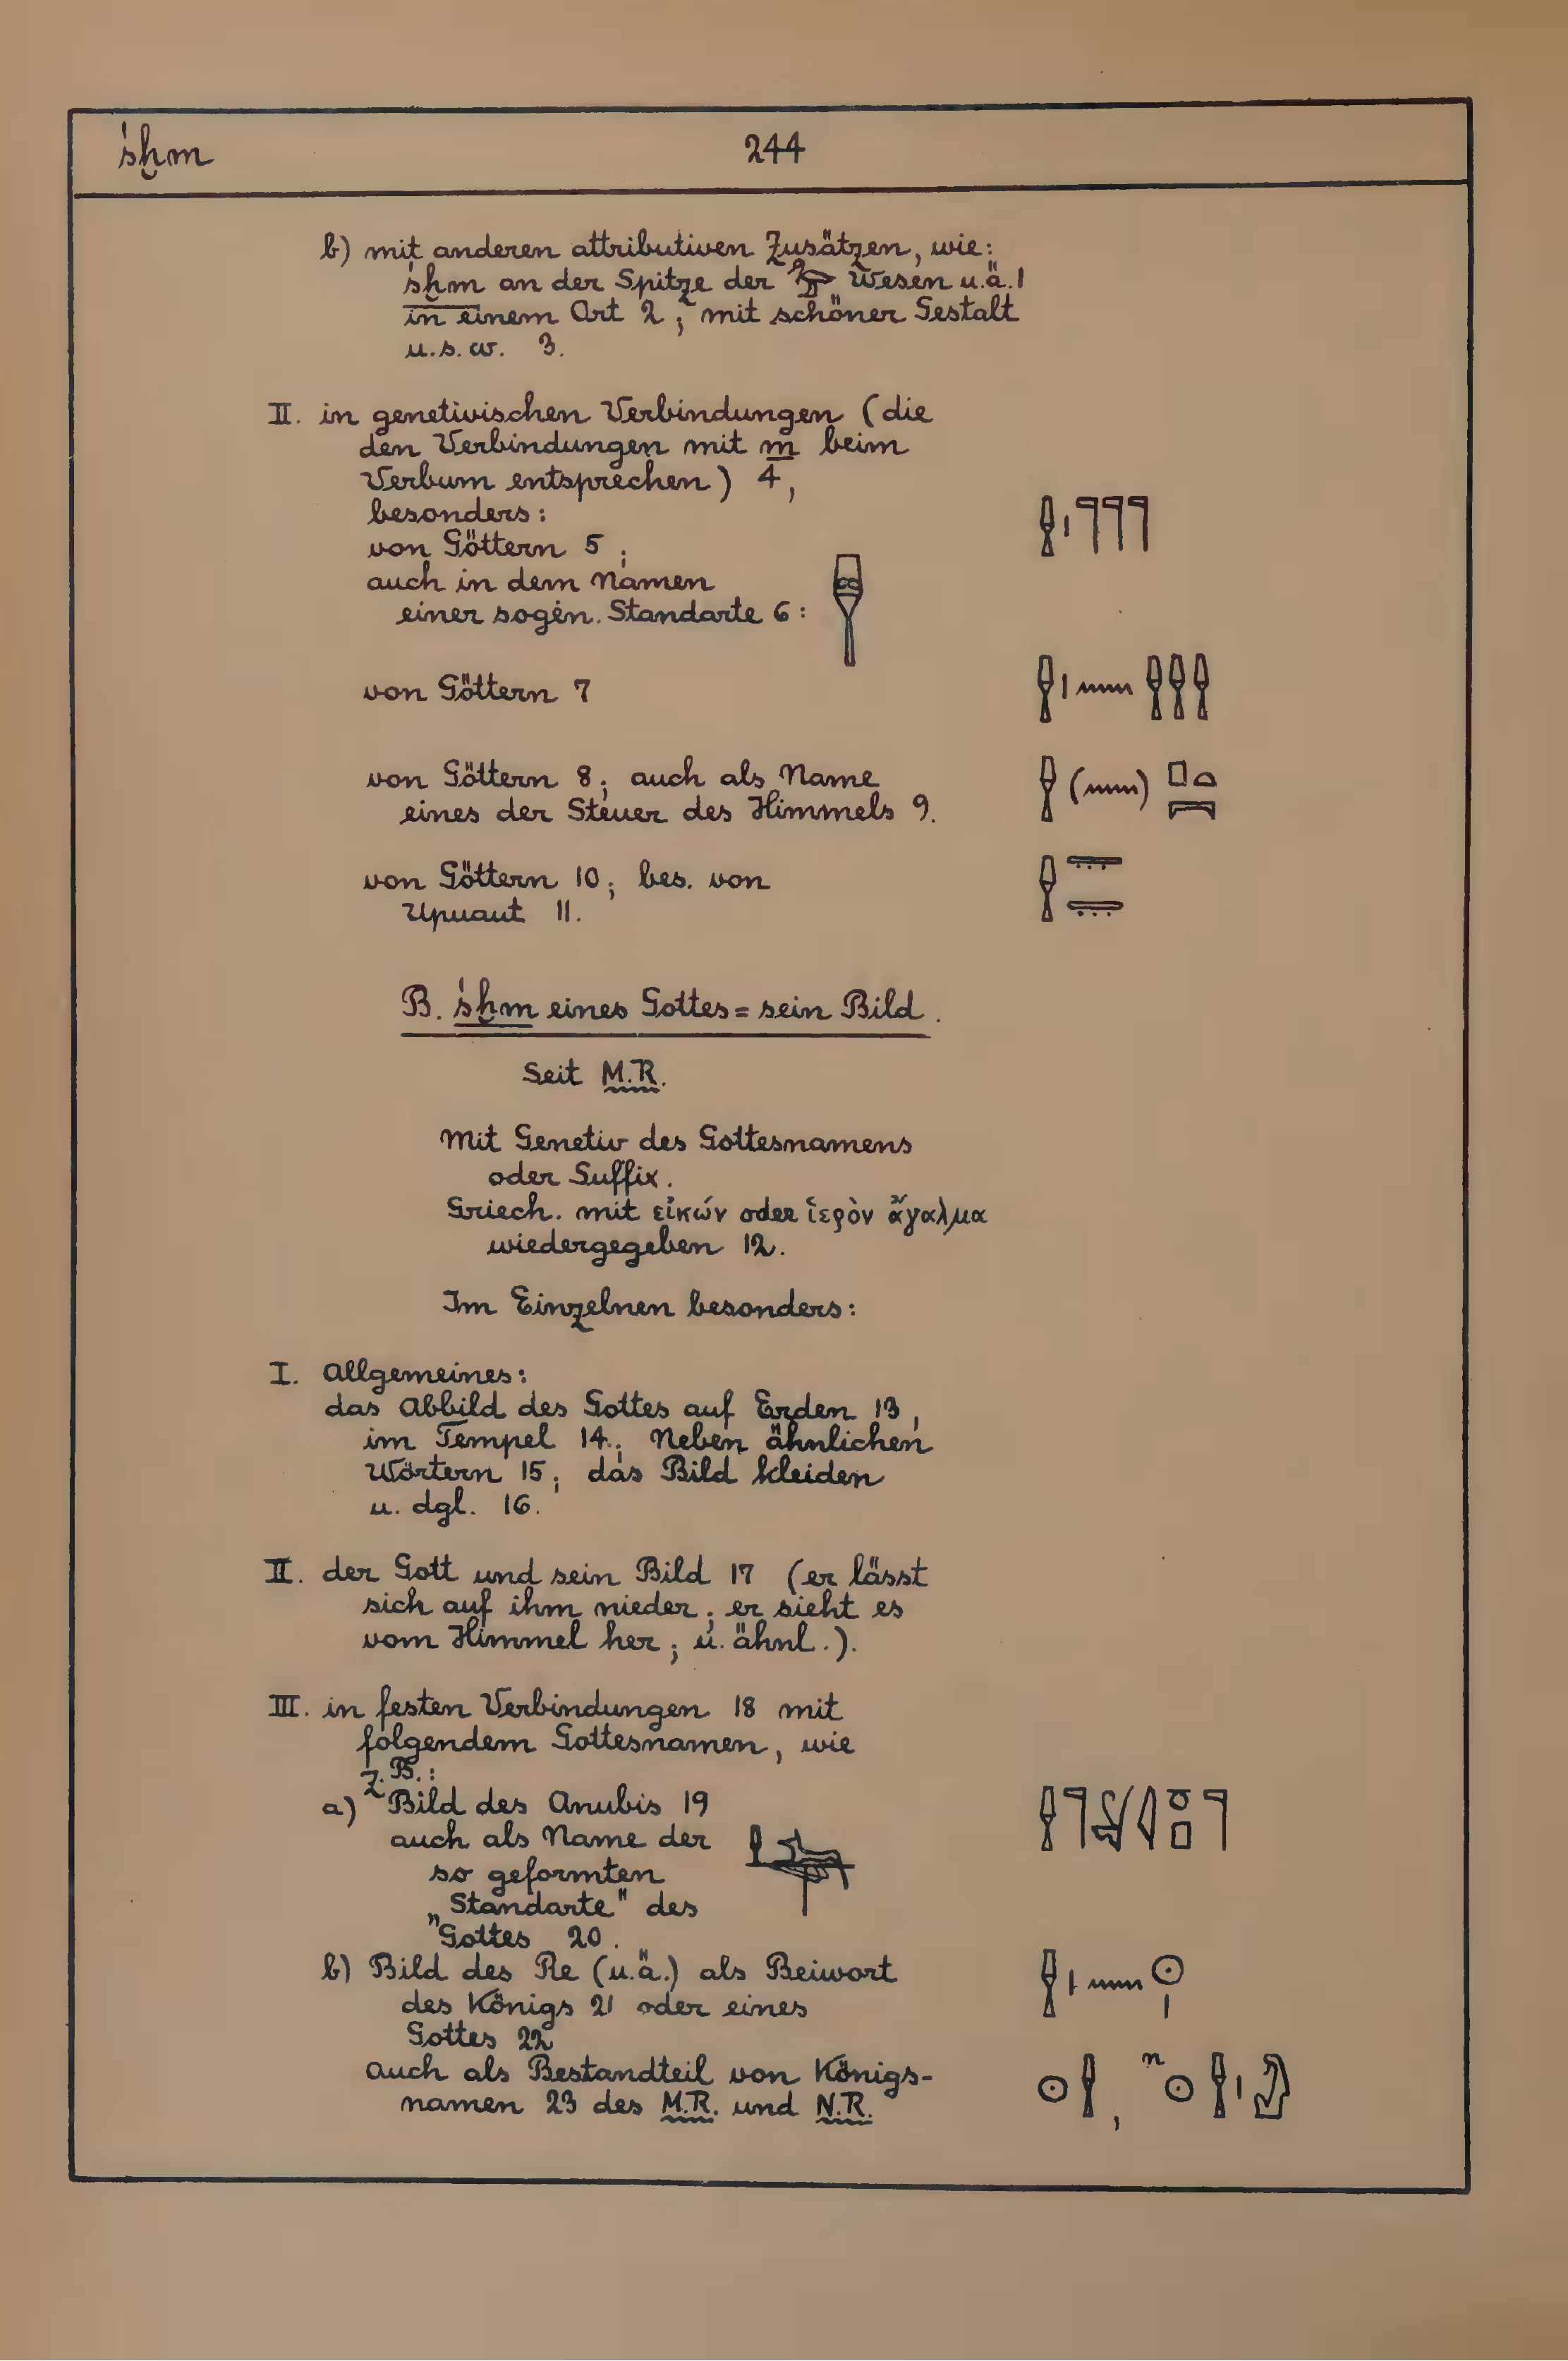 śḫm 244
b) mit anderen attributiven Zusätzen, wie:
śḫm an der Spitze der 𓅜 Wesen u.ä. 1
in einem Ort 2; mit schöner Gestalt
u.s.w. 3.
II. in genetivischen Verbindungen (die
den Verbindungen mit m beim
Verbum entsprechen) 4,
besonders:
von Göttern 5; 𓌂𓏤𓊹𓊹𓊹
auch in dem Namen
einer sogen. Standarte 6:
von Göttern 7 𓌂𓏤𓈖𓌂𓌂𓌂
von Göttern 8; auch als Name
eines der Steuer des Himmels 9. 𓌂(𓈖)𓊪𓏏𓇯
von Göttern 10; bes. von 𓌂𓇾𓇾
Upuaut 11.
B. śḫm eines Gottes = sein Bild.
Seit M.R.
Mit Genetiv des Gottesnamens
oder Suffix.
Griech. mit εἰκών oder ἱερὸν ἄγαλμα
wiedergegeben 12.
Im Einzelnen besonders:
I. Allgemeines:
das Abbild des Gottes auf Erden 13,
im Tempel 14. Neben ähnlichen
Wörtern 15; das Bild kleiden
u. dgl. 16.
II. der Gott und sein Bild 17 (er lässt
sich auf ihm nieder; er sieht es
vom Himmel her; u. ähnl.).
III. in festen Verbindungen 18 mit
folgendem Gottesnamen, wie
z.B.:
a) Bild des Anubis 19
auch als Name der
so geformten
„Standarte" des
Gottes 20.
b) Bild des Re (u.ä.) als Beiwort 𓌂𓏤𓈖𓇳𓏤
des Königs 21 oder eines
Gottes 22
auch als Bestandteil von Königs-
namen 23 des M.R. und N.R. 𓇳𓌂,